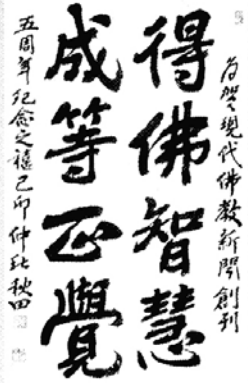 為賀現代佛教新聞創刊
得佛智慧
成等正覺
五周年紀念之禧己卯仲秋秋田